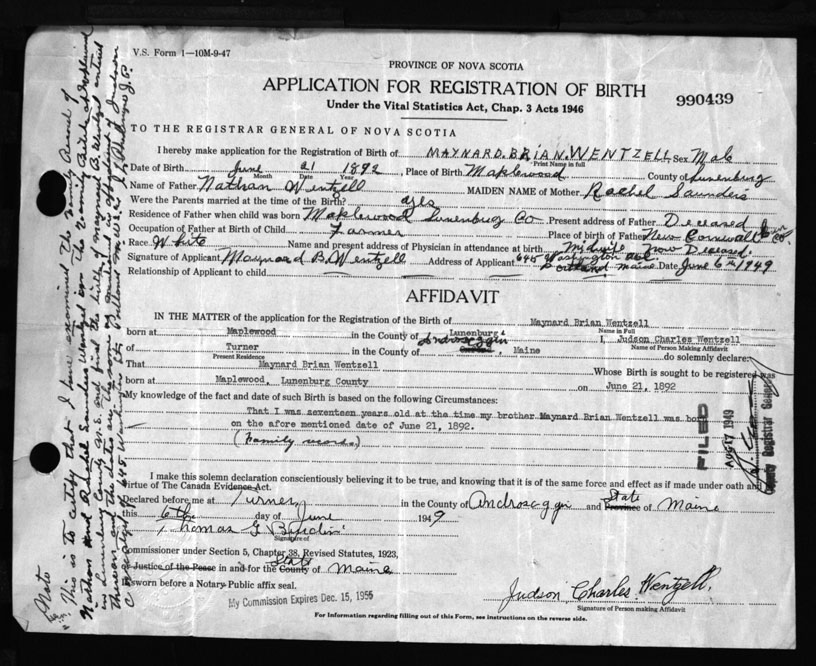 V.S. Form 1—10M-9-47
PROVINCE OF NOVA SCOTIA
APPLICATION FOR REGISTRATION OF BIRTH
Under the Vital Statistics Act, Chap. 3 Acts 1946
990439
TO THE REGISTRAR GENERAL OF NOVA SCOTIA
I hereby make application for the Registration of Birth of MAYNARD. BRIAN. WENTZELL Sex Male
Print Name in full
Date of Birth June 21 1892, Place of Birth Maplewood County of Lunenburg
Month Date Year
Name of Father Nathan Wentzell MAIDEN NAME of Mother Rachel Saunders
Were the Parents married at the time of the Birth? yes
Residence of Father when child was born Maplewood Lunenburg Co Present address of Father Deceased
Occupation of Father at Birth of Child Farmer Place of birth of Father New Cornwall Co.
Race White Name and present address of Physician in attendance at birth Midwife Now Deceased.
Signature of Applicant Maynard B. Wentzell Address of Applicant 645 Washington Ave.
Portland Maine Date June 6th 1949
Relationship of Applicant to child
AFFIDAVIT
IN THE MATTER of the application for the Registration of the Birth of Maynard Brian Wentzell
Name in Full
born at Maplewood in the County of Lunenburg & I, Judson Charles Wentzell
of Turner in the County of Androscoggin, Maine Name of Person Making Affidavit
Present Residence do solemnly declare:
That Maynard Brian Wentzell Whose Birth is sought to be registered was
born at Maplewood, Lunenburg County on June 21, 1892
My knowledge of the fact and date of such Birth is based on the following Circumstances:
That I was seventeen years old at the time my brother Maynard Brian Wentzell was born
on the afore mentioned date of June 21, 1892.
(Family record.)
FILED
AUG 17 1949
Deputy Registrar General
I make this solemn declaration conscientiously believing it to be true, and knowing that it is of the same force and effect as if made under oath and
virtue of The Canada Evidence Act.
Declared before me at Turner in the County of Androscoggin and State Province of Maine
this 6th day of June 1949
Thomas G
Signature of
Commissioner under Section 5, Chapter 38, Revised Statutes, 1923,
Justice of the Peace in and for the State County of Maine
If sworn before a Notary Public affix seal.
My Commission Expires Dec. 15, 1955
Judson Charles Wentzell.
Signature of Person making Affidavit
For Information regarding filling out above form, see instructions on the reverse side.
Note
This is to certify that I have examined the Family Record of
Nathan and Rachel Saunders Wentzel on the Family Bible at Maplewood
in Lunenburg County N.S. and find the birth of Maynard B. Wentzel entered